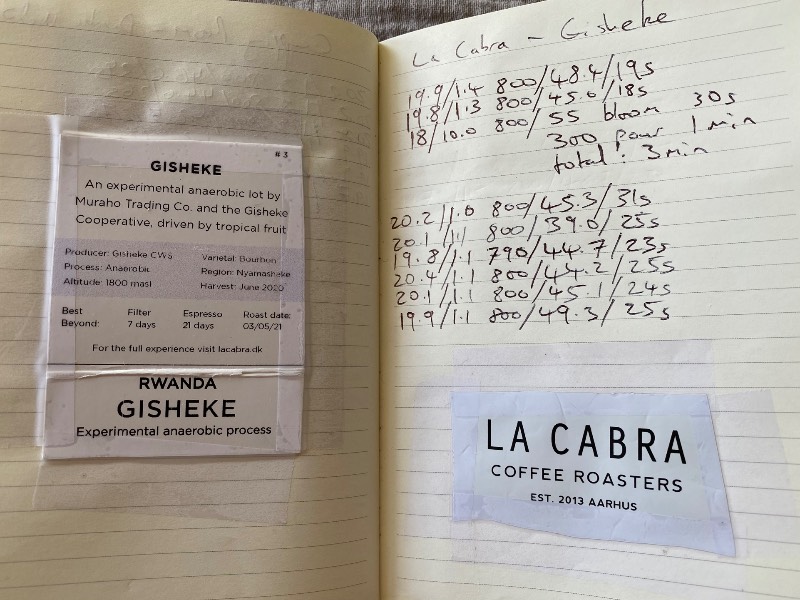 # 3
GISHEKE
An experimental anaerobic lot by
Muraho Trading Co. and the Gisheke
Cooperative, driven by tropical fruit
Producer: Gisheke CWS
Process: Anaerobic
Altitude: 1800 masl
Varietal: Bourbon
Region: Nyamasheke
Harvest: June 2020
Best Beyond:
Filter 7 days
Espresso 21 days
Roast date: 03/05/21
For the full experience visit lacabra.dk
RWANDA
GISHEKE
Experimental anaerobic process
La Cabra - Gisheke
19.9/1.4 800/48.4/19s
19.8/1.3 800/45.0/18s
18/10.0 800/55 bloom 30s
300 pour 1 min
total: 3 min
20.2/1.0 800/45.3/31s
20.1/1.1 800/39.0/25s
19.8/1.1 790/44.7/23s
20.4/1.1 800/44.2/25s
20.1/1.1 800/45.1/24s
19.9/1.1 800/49.3/25s
LA CABRA
COFFEE ROASTERS
EST. 2013 AARHUS